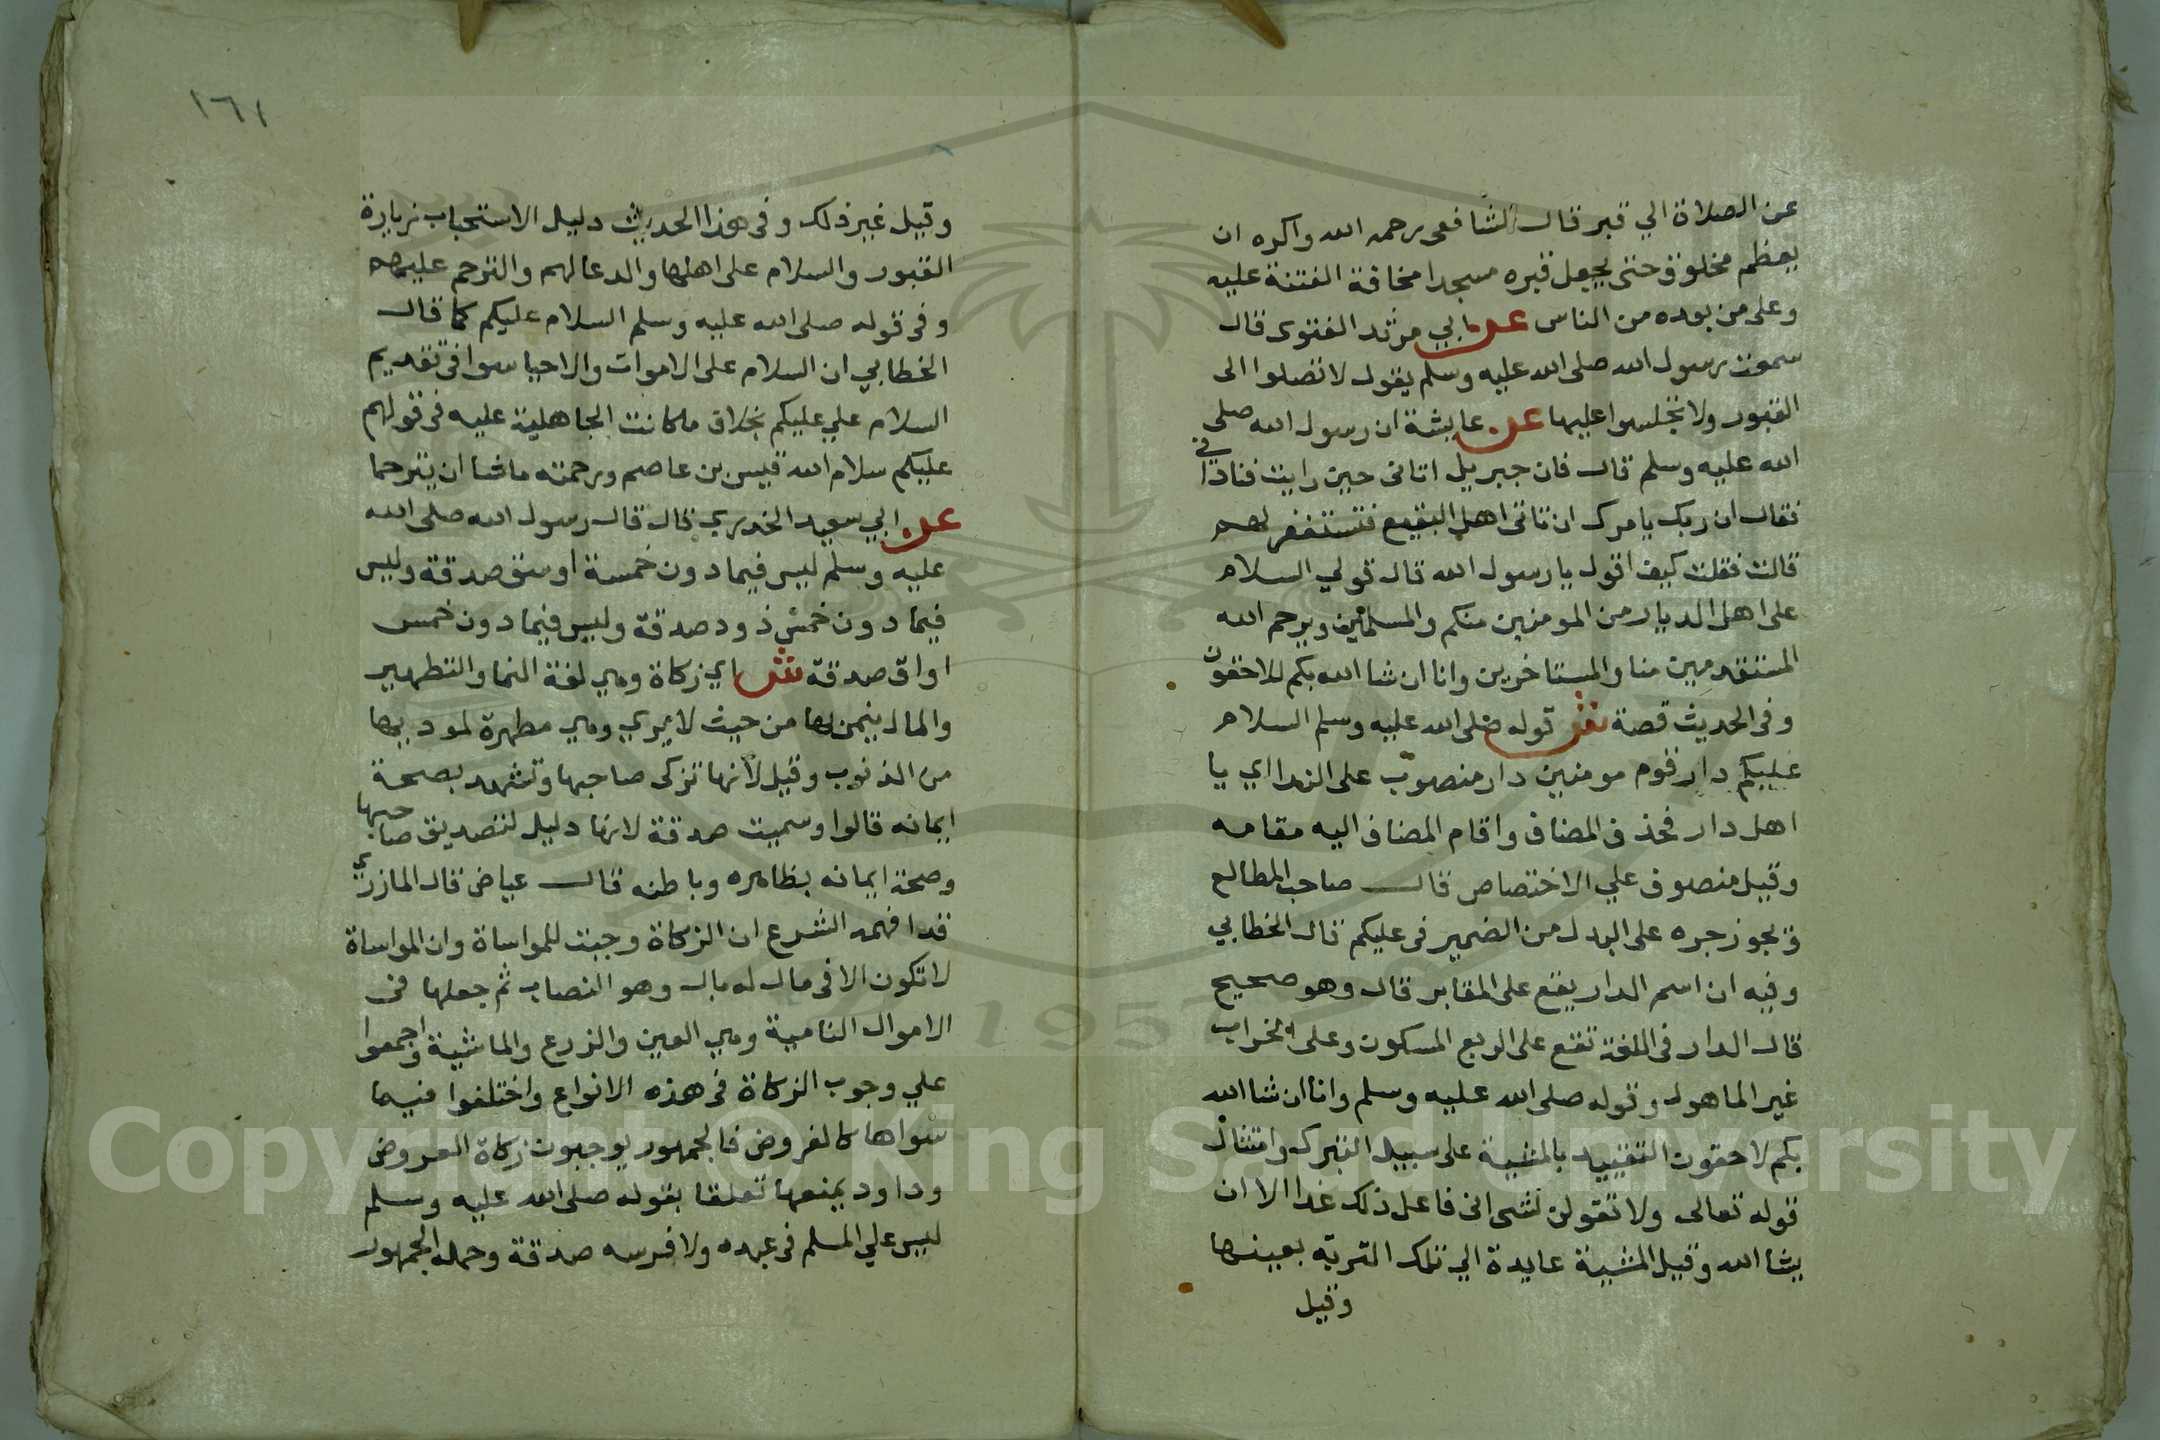 عن الصلاة الي قبر قال الشافعي رحمه الله واكره ان
يعظم مخلوق حتى يجعل قبره مسجدا مخافة الفتنة عليه
وعلى من بعده من الناس عن ابي مرثد الغنوى قال
سمعت رسول الله صلى الله عليه وسلم يقول لا تصلوا الى
القبور ولا تجلسوا عليها عن عايشة ان رسول الله صلى
الله عليه وسلم قال فان جبريل اتانى حين رايت فناداني
فقال ان ربك يامرك ان تاتى اهل البقيع فتستغفر لهم
قالت فقلت كيف اقول يا رسول الله قال قولي السلام
على اهل الديار من المومنين منكم والمسلمين ويرحم الله
المستقدمين منا والمستاخرين وانا ان شا الله بكم للاحقون
وفى الحديث قصة ش قوله صلى الله عليه وسلم السلام
عليكم دار قوم مومنين دار منصوب على الندا اي يا
اهل دار فحذف المضاف واقام المضاف اليه مقامه
وقيل منصوف علي الاختصاص قال صاحب المطالع
ويجوز جره على البدل من الضمير فى عليكم قال الخطابي
وفيه ان اسم الدار يقع على المقابر قال وهو صحيح
قال الدار فى اللغة تقع على الربع المسكون وعلى الخراب
غير الماهول وقوله صلى الله عليه وسلم وانا ان شا الله
بكم لاحقون التقييد بالمشية على سبيل التبرك وامتثال
قوله تعالى ولا تقولن لشى انى فاعل ذلك غدا الا ان
يشا الله وقيل المشية عايدة الي تلك التربة بعينها
وقيل
١٦١
وقيل غير ذلك وفى هذا الحديث دليل الاستحباب زيارة
القبور والسلام على اهلها والدعا لهم والترحم عليهم
وفى قوله صلى الله عليه وسلم السلام عليكم كما قال
الخطابي ان السلام على الاموات والاحيا سوا فى تقديم
السلام علي عليكم بخلاف ما كانت الجاهلية عليه فى قولهم
عليكم سلام الله قيس بن عاصم ورحمته ما شا ان يترحما
عن ابي سعيد الخدري قال قال رسول الله صلى الله
عليه وسلم ليس فيما دون خمسة اوسق صدقة وليس
فيما دون خمس ذود صدقة وليس فيما دون خمس
اواق صدقة ش اي زكاة وهي لغة النما والتطهير
والمال ينمى بها من حيث لا يري وهي مطهرة لموديها
من الذنوب وقيل لانها تزكى صاحبها وتشهد بصحة
ايمانه قالوا وسميت صدقة لانها دليل لتصديق صاحبها
وصحة ايمانه بظاهره وباطنه قال عياض قال المازري
قد افهم الشرع ان الزكاة وجبت للمواساة وان المواساة
لا تكون الا فى مال له بال وهو النصاب ثم جعلها فى
الاموال النامية وهي العين والزرع والماشية واجمعوا
علي وجوب الزكاة فى هذه الانواع واختلفوا فيما
سواها كالعروض فالجمهور يوجبون زكاة العروض
وداود يمنعها تعلقا بقوله صلى الله عليه وسلم
ليس علي المسلم فى عبده ولا فرسه صدقة وحمله الجمهور
1957
Copyright © King Saud University